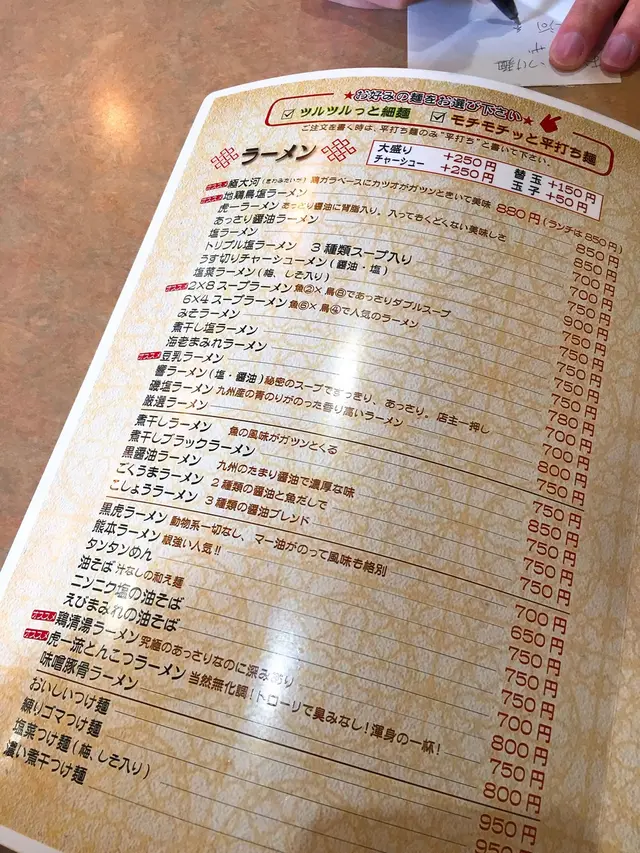 つけ麺
河
★お好みの麺をお選び下さい★
☑ツルツルっと細麺 ☑モチモチッと平打ち麺
ご注文を書く時は、平打ち麺のみ“平打ち”と書いて下さい。
ラーメン
大盛り +250円 替玉 +150円
チャーシュー +250円 玉子 +50円
オススメ 極大河(きわみたいが) 鶏ガラベースにカツオがガツンときいて美味 880円(ランチは850円)
オススメ 地鶏鳥塩ラーメン
虎一ラーメン あっさり醤油に背脂入り。入ってもくどくない美味しさ
あっさり醤油ラーメン
塩ラーメン
トリプル塩ラーメン 3種類スープ入り
うす切りチャーシューメン(醤油・塩)
塩菜ラーメン(梅、しそ入り)
オススメ 2×8スープラーメン 魚②×鳥⑧であっさりダブルスープ
6×4スープラーメン 魚⑥×鳥④で人気のラーメン
みそラーメン
煮干し塩ラーメン
海老まみれラーメン
オススメ 豆乳ラーメン
響ラーメン(塩・醤油) 秘密のスープですっきり、あっさり。店主一押し
磯塩ラーメン 九州産の青のりがのった香り高いラーメン
厳選ラーメン
850円
850円
700円
700円
750円
900円
750円
750円
750円
750円
780円
700円
700円
800円
750円
煮干しラーメン 魚の風味がガツンとくる
煮干しブラックラーメン
黒醤油ラーメン 九州のたまり醤油で濃厚な味
ごくうまラーメン 2種類の醤油と魚だしで
こしょうラーメン 3種類の醤油ブレンド
750円
850円
750円
750円
750円
黒虎ラーメン 動物系一切なし、マー油がのって風味も絶別
熊本ラーメン 根強い人気!!
タンタンめん
油そば 汁なしの和え麺
ニンニク塩の油そば
えびまみれの油そば
オススメ 鶏清湯ラーメン 究極のあっさりなのに深みあり
オススメ 虎一流とんこつラーメン 当然無化調!トローリで臭みなし!渾身の一杯!
味噌豚骨ラーメン
700円
650円
750円
750円
750円
700円
800円
750円
800円
おいしいつけ麺
練りゴマつけ麺
塩菜つけ麺(梅、しそ入り)
濃い煮干つけ麺
950円
950円